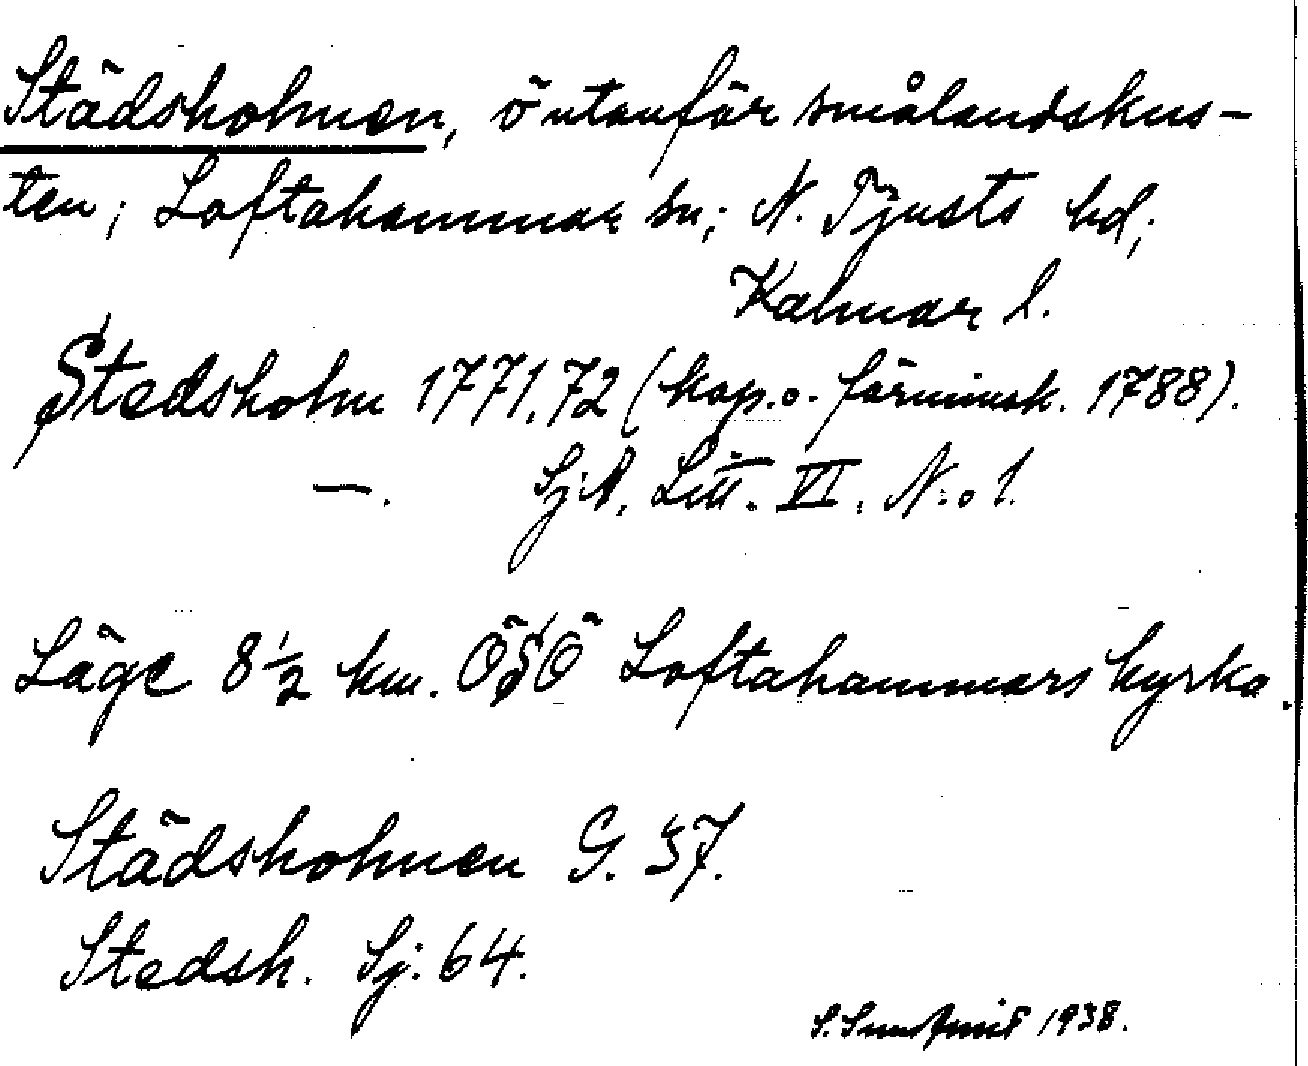 Städsholmen, ö utanför smålandskus-
ten; Loftahammar sn; N. Tjusts hd;
Kalmar l.
Stedsholm 1771.72 (kop. o. förminsk. 1788).
—. Sj.A. Litt. VI. N:o 1.
Läge 8 1/2 km. ÖSÖ Loftahammars kyrka.
Städsholmen G. 37.
Stedsh. Sj. 64.
S. 1938.